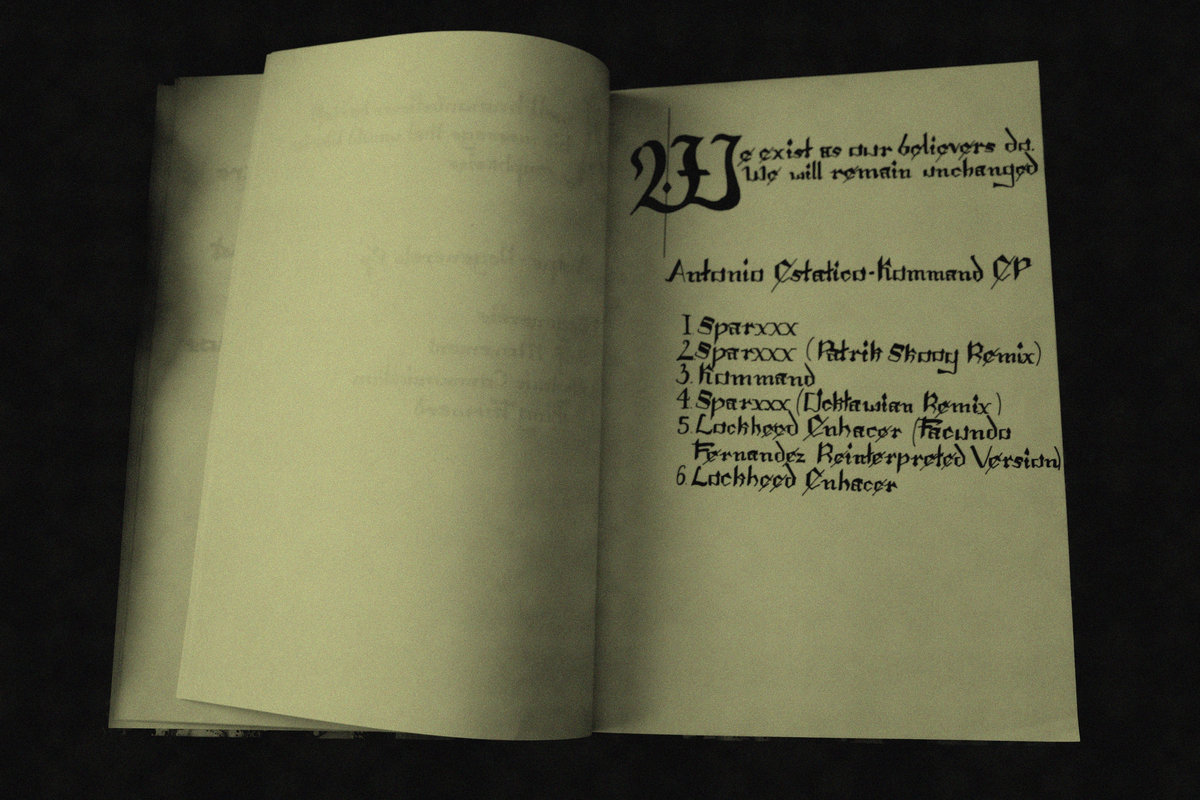 We exist as our believers do.
We will remain unchanged
Antonio Estatico-Kommand EP
1 Sparxxx
2 Sparxxx (Patrik Skoog Remix)
3. Kommand
4. Sparxxx (Ocktawian Remix)
5. Lockheed Enhacer (Facundo
Fernandez Reinterpreted Version)
6. Lockheed Enhacer